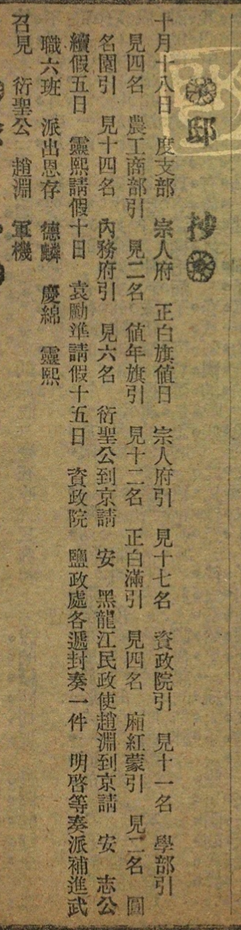 邸抄
十月十八日　度支部　宗人府　正白旗値日　宗人府引　見十七名　資政院引　見十一名　學部引
見四名　農工商部引　見二名　値年旗引　見十二名　正白滿引　見四名　廂紅蒙引　見二名　圓
名園引　見十四名　內務府引　見六名　衍聖公到京請　安　黑龍江民政使趙淵到京請　安　志公
續假五日　靈熙請假十日　袁勵準請假十五日　資政院　鹽政處各遞封奏一件　明啓等奏派補進武
職六班　派出恩存　德麟　慶綿　靈熙
召見　衍聖公　趙淵　軍機